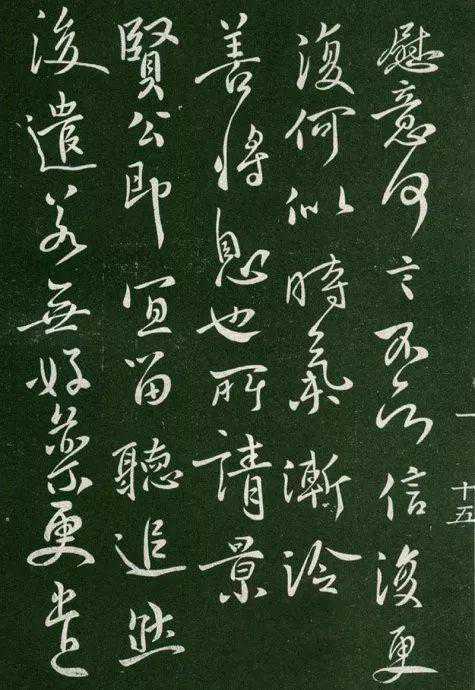 慰意何言不以信復更
復何似時氣漸冷
善將息也所請景
賢公即宜留聽追然
後遣若無好藥更遣
一
十五